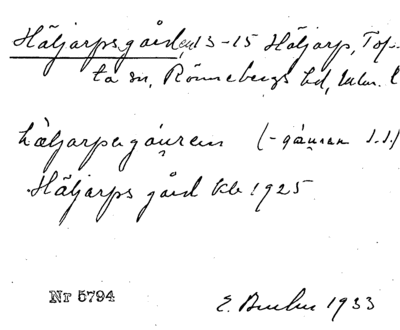 Häljarpsgård, en 13-15 Häljarp, Tof-
ta sn, Rönnebergs hd, Malm. l
hàljarpsgáu̯ren (-gáu̯ran s.s.)
Häljarps gård kb 1925
Nr 5794 E. Brulin 1933